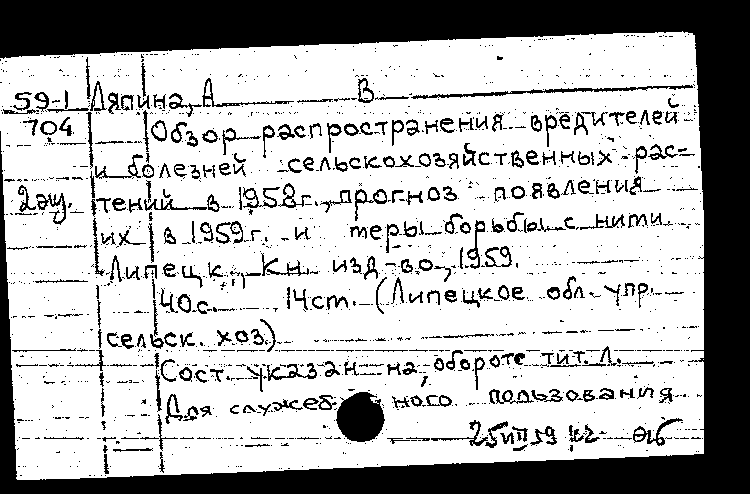 59-1 Ляпина, А В
704 Обзор распространения вредителей
и болезней сельскохозяйственных рас-
2 экз. тений в 1958г., прогноз появления
их в 1959г. и меры борьбы с ними
Липецк, Кн. изд-во, 1959.
40с. 14см. (Липецкое обл. упр.
сельск. хоз.)
Сост. указан на обороте тит. л.
Для служебного пользования
25 VII 59